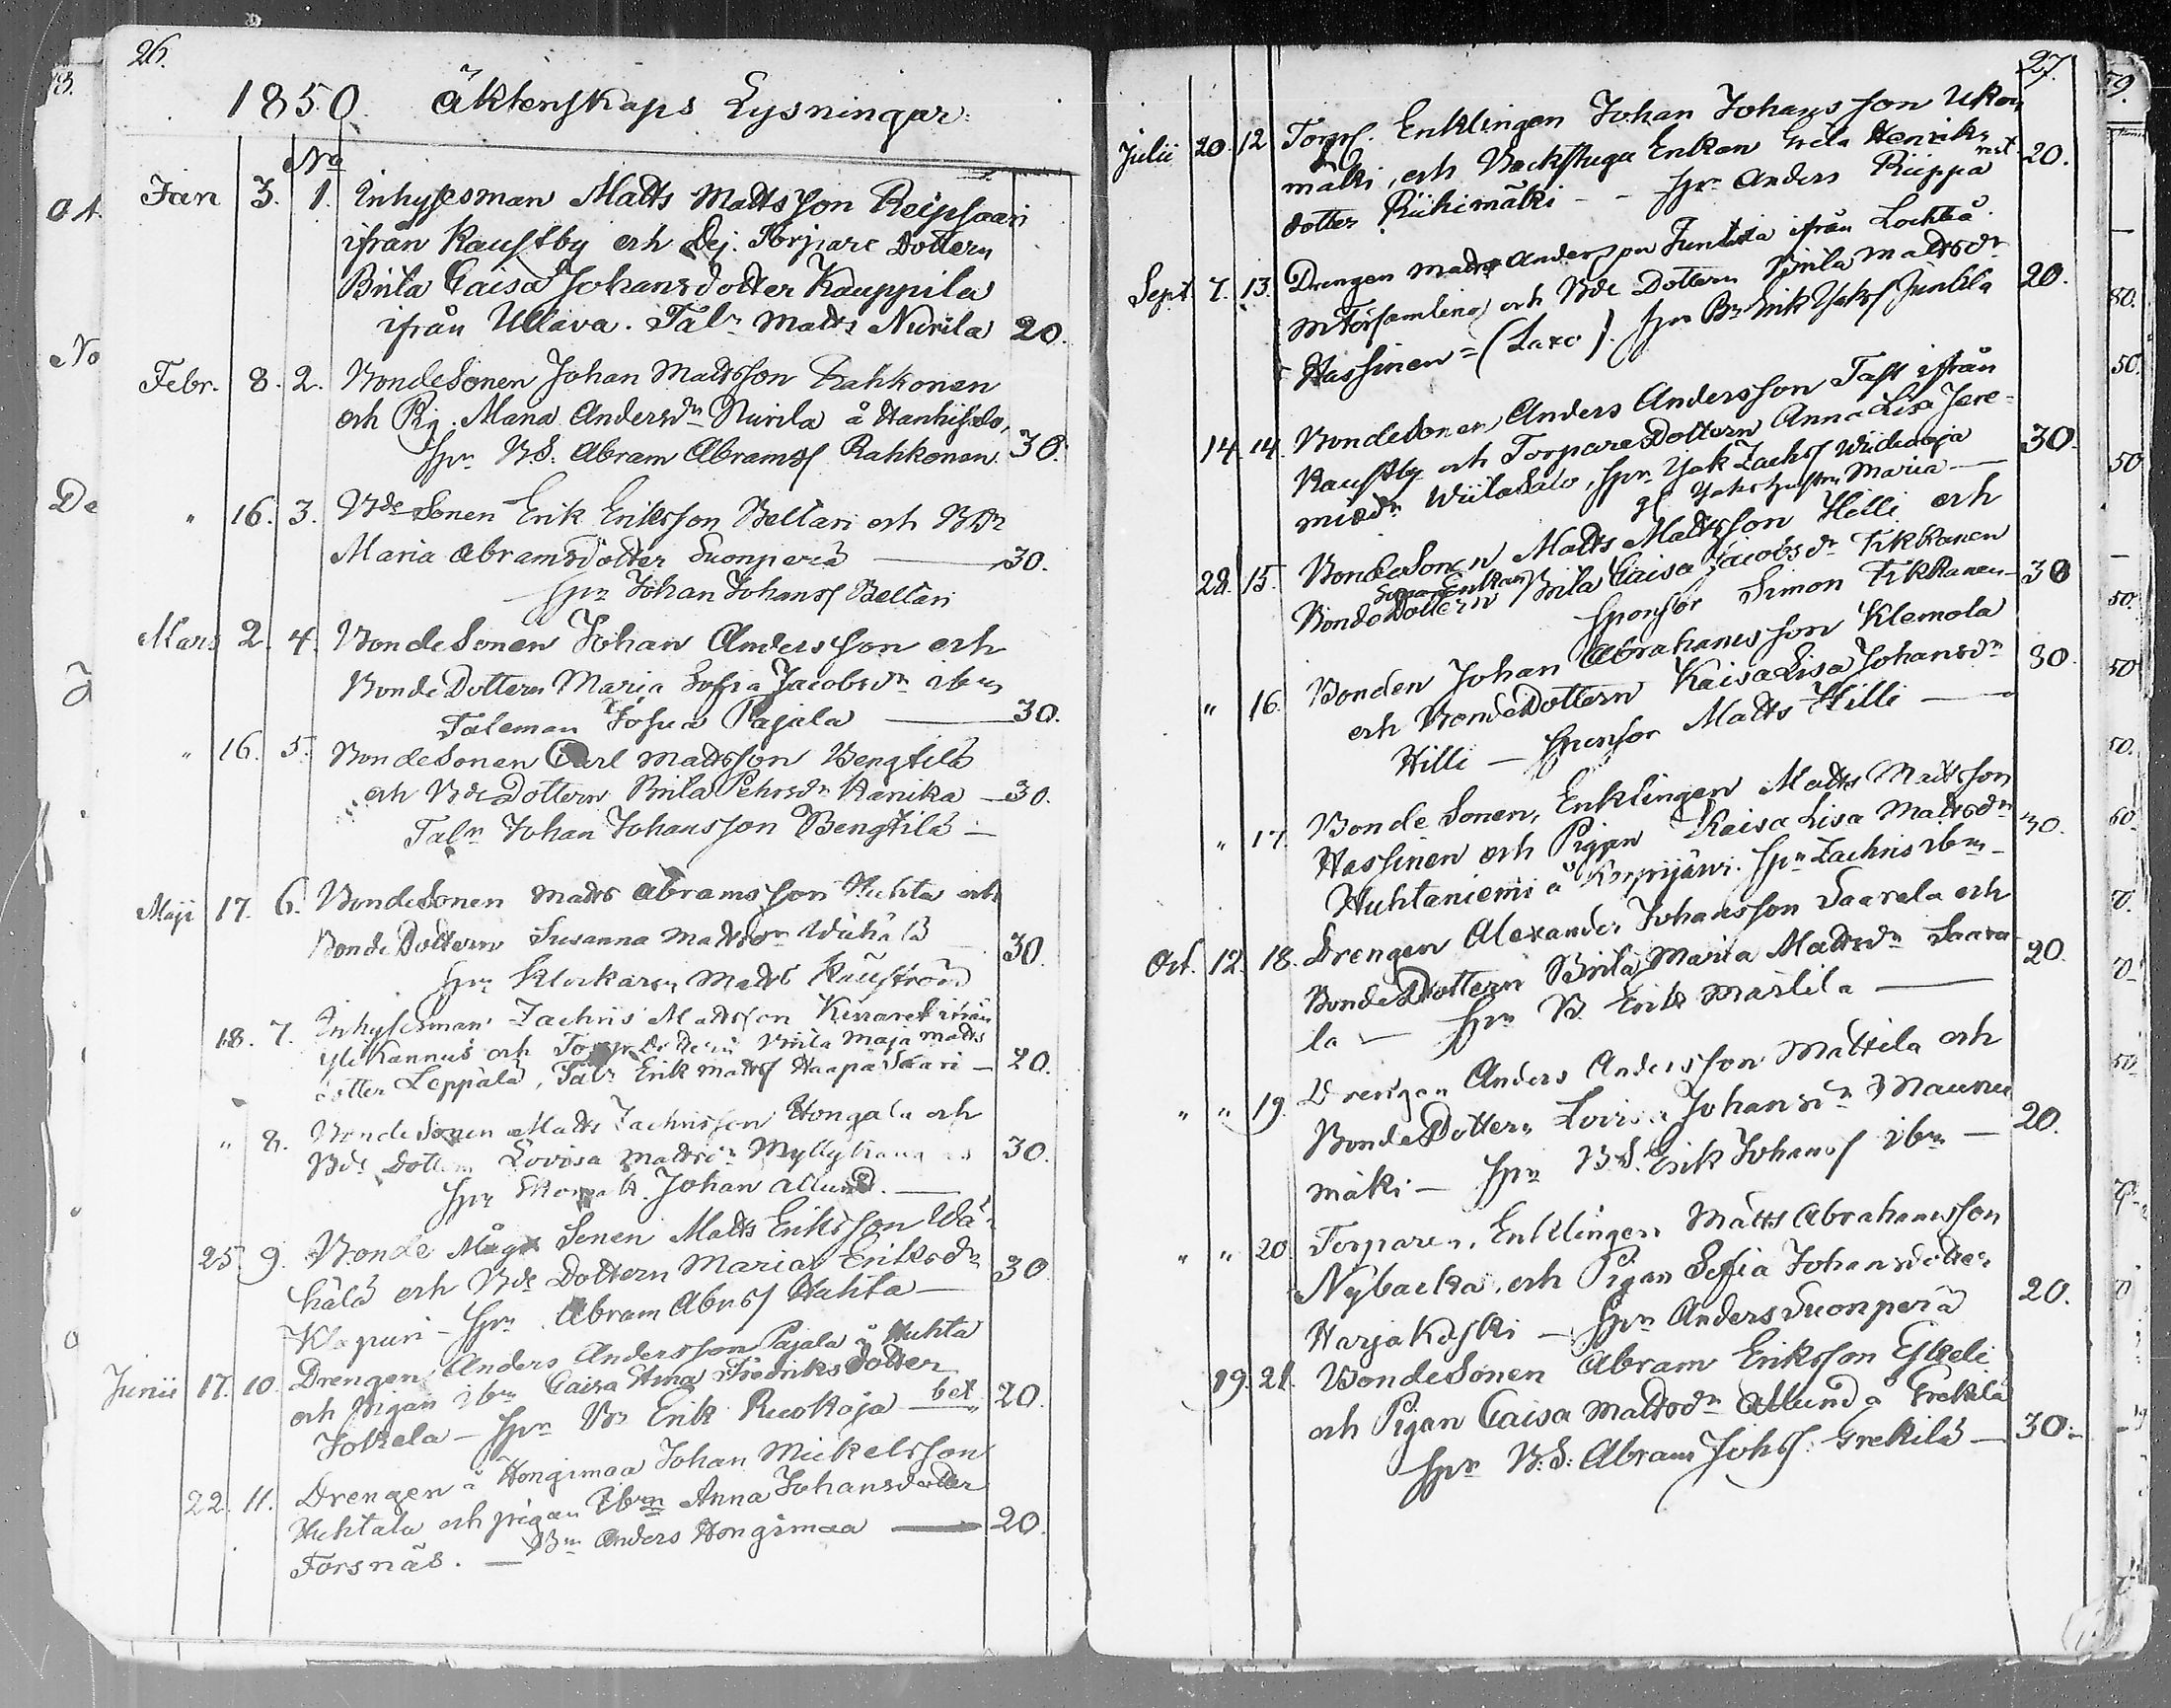 26.
1850. Äktenskaps Lysningar:
No
Jan 3. 1. Inhysesman Matts Mattsson Reipsaari
ifrån Kaustby och Dej. Torpare Dottern
Brita Caisa Johansdotter Kauppila
ifrån Ullava. Talm Matts Nurila 20.
Febr. 8. 2. BondeSonen Johan Mattsson Rahkonen
och Pig. Maria Andersdr Nurila å Hanhisalo,
Spr B.S. Abram Abramss Rahkonen. 30.
" 16. 3. Bde Sonen Erik Eriksson Bellari och BDr
Maria Abramsdotter Suonperä 30.
Spr Johan Johanss Bellari
Mars 2. 4. BondeSonen Johan Andersson och
BondeDottern Maria Sofia Jacobsdr ibm
Taleman Josua Pajala 30.
" 16. 5. BondeSonen Carl Mattsson Bengtilä
och BdeDottern Brita Pehrsdr Kanika 30.
Talm Johan Johansson Bengtilä
Maji 17. 6. BondeSonen Matts Abramsson Huhta och
BondeDottern Susanna Mattsdr Wähälä
Spr Klockaren Matts Kauström 30.
18. 7. Inhysesman Zachris Mattsson ifrån
YliKannus och Dottern Brita Maja Matts
dotter Leppälä, Talm Erik Mattss Haapasaari 20.
" 8. BondeSonen Matts Zachrisson Hongala och
Bde Dottern Lovisa Mattsdr Myllykangas 30.
Spr Johan Allund.
25. 9. Bonde Måg Sonen Matts Eriksson Wä-
hälä och Bde Dottern Maria Eriksdr
Klapuri - Spr Abram Abrss Huhta 30
Junii 17. 10. Drengen Anders Andersson Pajala å Huhta
och Pigan ibm Caisa Stina Fredriksdotter
Jokela - Spr Bn Erik Ruokoja bet. 20.
22. 11. Drengen å Hongimaa Johan Mickelsson
Huhtala och pigan ibm Anna Johansdotter
Forsnäs. - Bn Anders Hongimaa 20.
27.
Julii 20. 12 Torp. Enklingen Johan Johansson Ukon
mäki, och Backstugu Enkan Greta Henriks
dotter Riihimäki - - Spr Anders Riippa 20.
Sept. 7. 13. Drengen Matts Andersson Juntila ifrån Lochteå
mförsamling och Bde Dottern Brita Mattsdr
Hassinen = (Laxo). Spr Bn Erik Jakss Juntila 20.
14. 14. BondeSonen Anders Andersson Tast ifrån
Kaustby och TorpareDottern Anna Lisa Jere-
miædr WiilaSalo, Spr Jak Zachss Wiideoja 30.
Maria
22. 15. BondeSonen Matts Mattsson Hilli och
BondeDottern Brita Caisa Jacobsdr Tikkanen
Sponsor Simon Tikkanen 30
" 16. Bonden Johan Abrahamsson Klemola
och BondeDottern Kaisa Lisa Johansdr
Hilli - Sponsor Matts Hilli 30.
" 17. Bonde Sonen, Enklingen Matts Mattsson
Hassinen och Pigan Kaisa Lisa Mattsdr
Huhtaniemi å Körpijärvi. Spr Zachris ibm 30.
Oct. 12. 18. Drengen Alexander Johansson Saarela och
BondeDottern Brita Maria Mattsdr Saare
la - Spr B. Erik Märlila 20.
" " 19. Drengen Anders Andersson Mattila och
BondeDottern Lovisa Johansdr Maunu
mäki - Spr B.S. Erik Johanss ibm 20.
" " 20. Torparen, Enklingen Matts Abrahamsson
Nybacka, och Pigan Sofia Johansdotter
Harjakoski - Spr Anders Suonperä 20.
19. 21. BondeSonen Abram Eriksson Eskeli
och Pigan Caisa Mattsdr Allund å Grekilä
Spr B.S. Abram Johss. Grekilä 30.